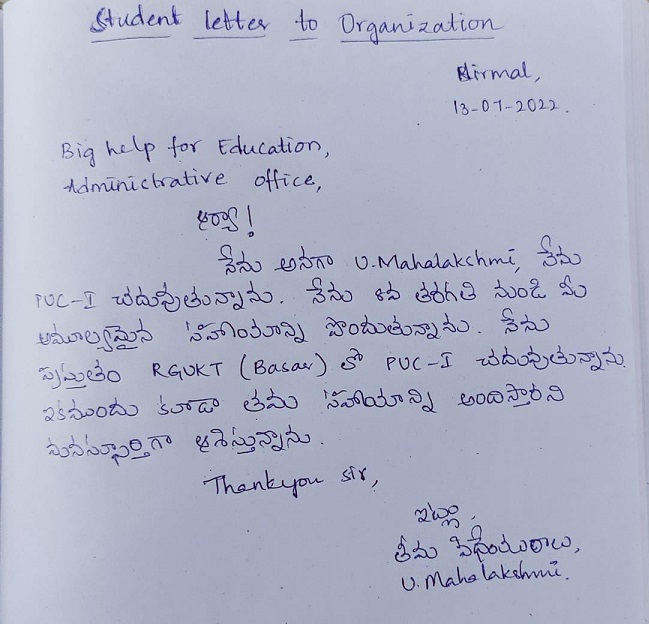 Student letter to Organization
Nirmal,
13-07-2022.
Big help for Education,
Administrative office,
ఆర్యా!
నేను అనగా U.Mahalakshmi, నేను
PUC-I చదువుతున్నాను. నేను 8వ తరగతి నుండి మీ
అమూల్యమైన సహాయాన్ని పొందుతున్నాను. నేను
ప్రస్తుతం RGUKT (Basar) లో PUC-I చదువుతున్నాను.
ఇకముందు కూడా తమ సహాయాన్ని అందిస్తారని
మనస్ఫూర్తిగా ఆశిస్తున్నాను.
Thankyou sir,
ఇట్లు,
తమ విధేయురాలు,
U. Mahalakshmi.